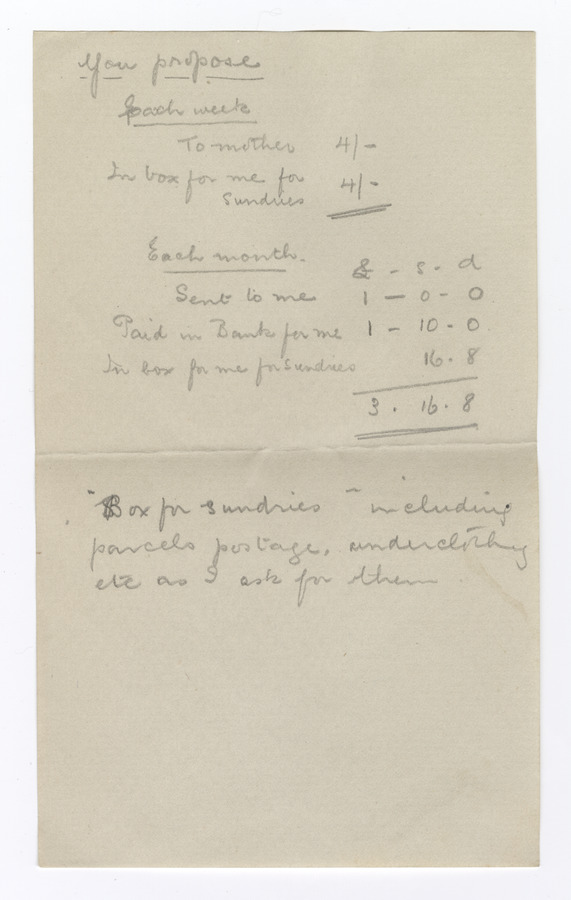 You propose
Each week
To mother 4/-
In box for me for
Sundries 4/-
Each month.
£ - s - d
Sent to me 1 - 0 - 0
Paid in Bank for me 1 - 10 - 0
In box for me for sundries 16 . 8
3 . 16 . 8
"Box for sundries" including
parcels postage, underclothing
etc as I ask for them